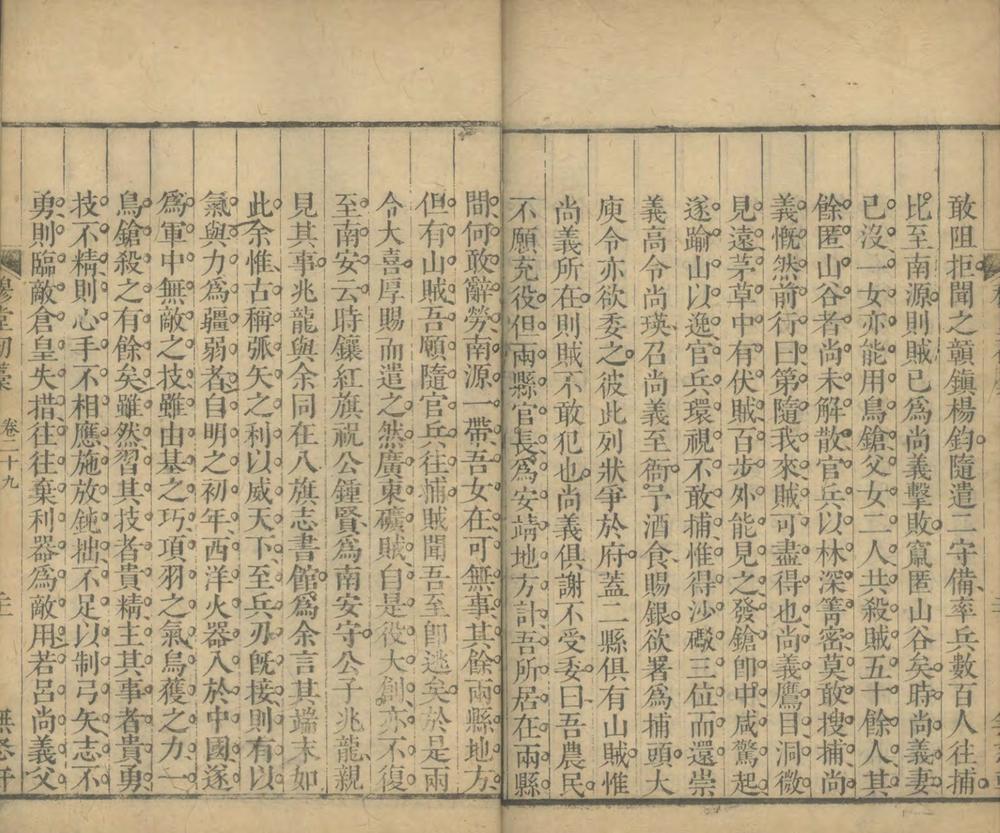 敢阻拒聞之贛鎮楊鈞隨遣二守備率兵數百人往捕
比至南源則賊已爲尚義擊敗竄匿山谷矣時尚義妻
已沒一女亦能用鳥鎗父女二人共殺賊五十餘人其
餘匿山谷者尚未解散官兵以林深箐密莫敢搜捕尚
義慨然前行曰第隨我來賊可盡得也尚義鷹目洞微
見遠茅草中有伏賊百步外能見之發鎗卽中咸驚起
遂踰山以逸官兵環視不敢捕惟得沙礮三位而還崇
義高令尚瑛召尚義至衙予酒食賜銀欲署爲捕頭大
庾令亦欲委之彼此列狀爭於府蓋二縣俱有山賊惟
尚義所在則賊不敢犯也尚義俱謝不受委曰吾農民
不願充役但兩縣官長爲安靖地方計吾所居在兩縣
間何敢辭勞南源一帶吾女在可無事其餘兩縣地方
但有山賊吾願隨官兵往捕賊聞吾至卽逃矣於是兩
令大喜厚賜而遣之然廣東礦賊自是役大創亦不復
至南安云時鑲紅旗祝公鍾賢爲南安守公子兆龍親
見其事兆龍與余同在八旗志書館爲余言其端末如
此余惟古稱弧矢之利以威天下至兵刃旣接則有以
氣與力爲彊弱者自明之初年西洋火器入於中國遂
爲軍中無敵之技雖由基之巧項羽之氣烏獲之力一
鳥鎗殺之有餘矣雖然習其技者貴精主其事者貴勇
技不精則心手不相應施放鈍拙不足以制弓矢志不
勇則臨敵倉皇失措往往棄利器爲敵用若呂尚義父
穆堂初藁 卷二十九 無怒軒